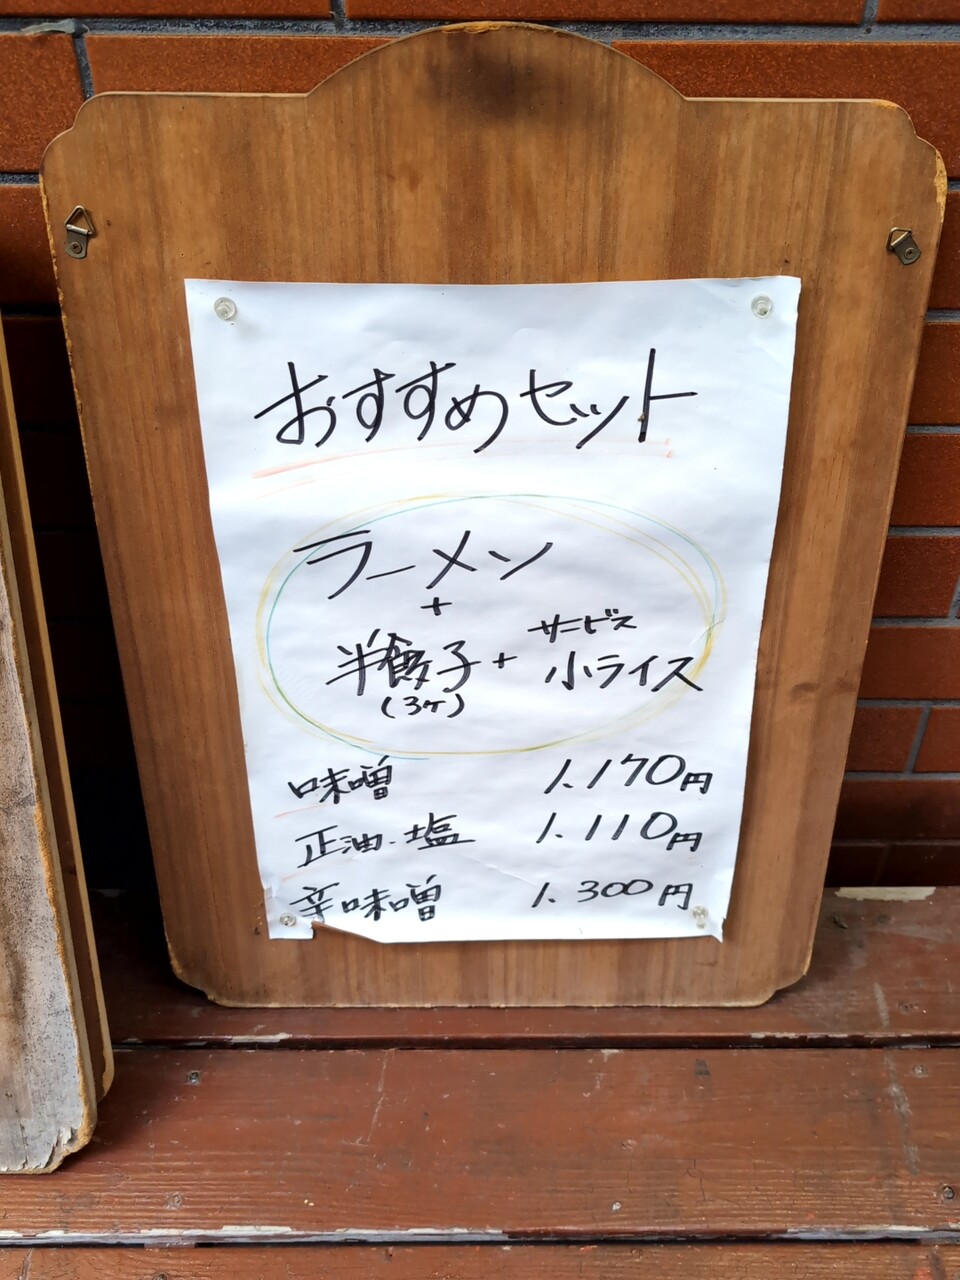 おすすめセット
ラーメン
+
サービス
半餃子 + 小ライス
(3ケ)
味噌 1.170円
正油・塩 1.110円
辛味噌 1.300円